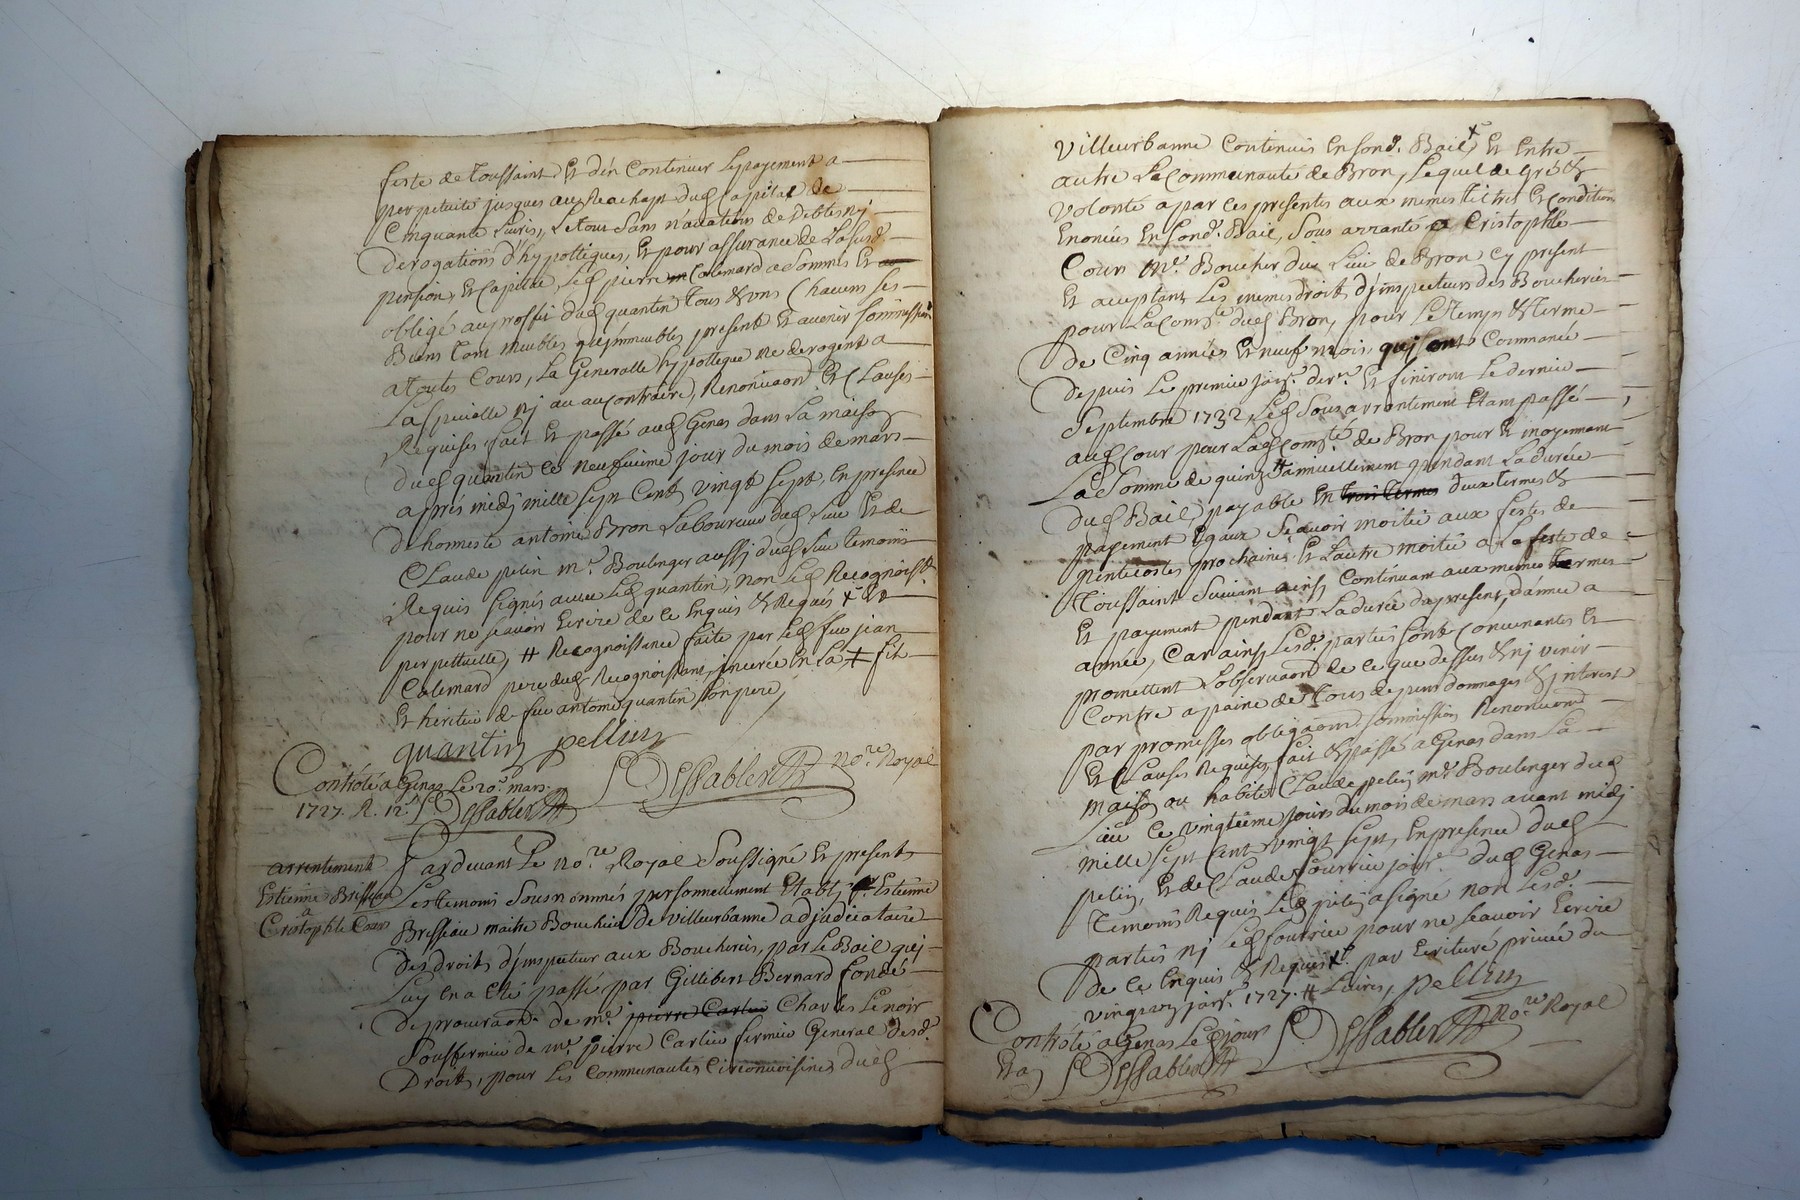 feste de Toussaint Et d'en Continuer Le payement a
perpetuité jusques au Reachapt dud Capital de
Cinquante Livres, Le tout Sans n'avations de debtes nj
derogations d'hypotteques, Et pour assurance de La susd.
pension, Et Capital, Led pierre Calemard a Sommis Et
obligé au proffit dud quantin Tous & uns Chacuns ses
Biens Tant meubles qu'jmmeubles present Et avenir Sommission
a Toutes Cours, La Generalle hypotteque ne derogent a
La specialle nj au contraire, Renonciaon Et Clauses
Requises fait Et passé aud Genas dans La maison
dud quantin ce neufvieme jour du mois de mars
apres midj mille sept Cent vingt sept, En presence
d'honneste antoine Bron Laboureur dud Lieu Et de
Claude pelin me. Boulenger aussj dud Lieu temoins
Requis signés avec Led quantin, non Led Recognoiss.t
pour ne scavoir Ecrire de ce Enquis & Requis +
perpettuelle, # Recognoissance faite par Led feu jean
Calemard pere dud Recognoissant, incerée En La ‡ fils
Et heritier de feu antoine quantin son pere,
quantin pellin
Dessabler No.re Royal
Controlé a Genas Le 20e. mars
1727. R. 12 s. Dessabler
arrentement
Estienne Brisseau
a
Cristophle Cour
Pardevant Le no.re Royal Soussigné Et presents
Les temoins Sousnommés personnellement Establj sr Estienne
Brisseau maitre Boucher de Villeurbanne adjudicataire
des droits d'jnspecteur aux Boucheries, par Le Bail quj
Luy En a eté passé par Gillibert Bernard fondé
de procuraon. de me. pierre Carlier Charles Lenoir
Sousfermier de me. pierre Carlier fermier General desd.
Droits, pour Les Communautés Circonvoisines dud
Villeurbanne Contenues En sond. Bail + Et Entre
autre La Communauté de Bron, Lequel de gré &
Volonté a par ces presentes aux memes Titres Et Condition
Enoncées En sond. Bail, Sous arranté a Cristophle
Cour Me. Boucher du Lieu de Bron cy present
Et acceptant Les memes droits d'jnspecteurs des Boucheries
pour La Com.té dud Bron, pour Le Temps & Terme
de Cinq années Et neuf mois, quj ont Commancé
depuis Le premier janr. der.r Et finiront Le dernier
Septembre 1732, Led Sousarrentement Etant passé
aud Cour pour Lad Com.té de Bron pour Et moyennant
La Somme de quinze # annuellement pendant La durée
dud Bail, payable En trois Termes deux termes &
payement Egaux Scavoir moitié aux festes de
pentecostes prochaines Et L'autre moitié a La feste de
Toussaint Suivant ainsj Continuant aux memes Termes
Et payement pendant La durée du present, d'année a
année, Car ainsj Lesd. parties sont convenantes Et
promettent L'observaon de ce que dessus & nj venir
Contre a paine de Tous depens dommages & jnterest
par promesses obligaons. sommission Renonciaons
Et Clauses Requises, fait & passé a Genas dans La
maison ou habite Claude pelin me. Boulenger dud
Lieu Ce vingtieme jours du mois de mars avant midj
mille sept Cent vingt sept, En presence dud
pelin, Et de Claude fourrier jour.r dud Genas
Temoins Requis Led pelin a signé non Lesd.
parties nj Led fourrier pour ne scavoir Ecrire
de ce Enquis & Requis +. par Ecriture privée du
janr. 1727. # Livres, pellin
Dessabler No.re Royal
Controlé a Genas Led jour
Et an Dessabler